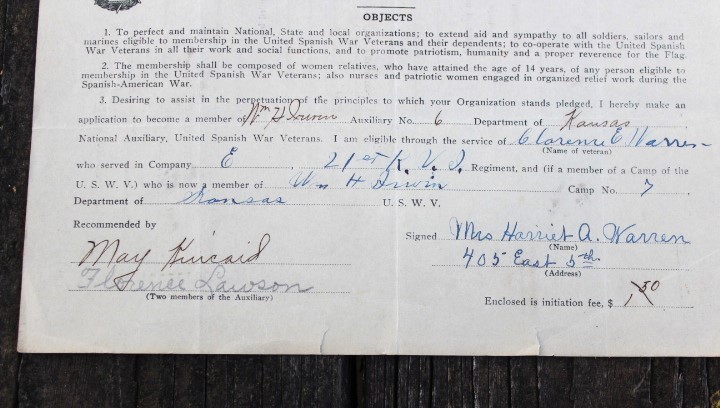 OBJECTS
1. To perfect and maintain National, State and local organizations; to extend aid and sympathy to all soldiers, sailors and
marines eligible to membership in the United Spanish War Veterans and their dependents; to co-operate with the United Spanish
War Veterans in all their work and social functions, and to promote patriotism, humanity and a proper reverence for the Flag.
2. The membership shall be composed of women relatives, who have attained the age of 14 years, of any person eligible to
membership in the United Spanish War Veterans; also nurses and patriotic women engaged in organized relief work during the
Spanish-American War.
3. Desiring to assist in the perpetuation of the principles to which your Organization stands pledged, I hereby make an
application to become a member of Wm H Irwin Auxiliary No. 6 Department of Kansas
National Auxiliary, United Spanish War Veterans. I am eligible through the service of Clarence E Warren
(Name of veteran)
who served in Company E 21st K. V. I. Regiment, and (if a member of a Camp of the
U. S. W. V.) who is now a member of Wm H Irwin Camp No. 7
Department of Kansas U. S. W. V.
Recommended by
May Kincaid
Florence Lawson
(Two members of the Auxiliary)
Signed Mrs Harriet A. Warren
(Name)
405 East 5th
(Address)
Enclosed is initiation fee, $ 1.50